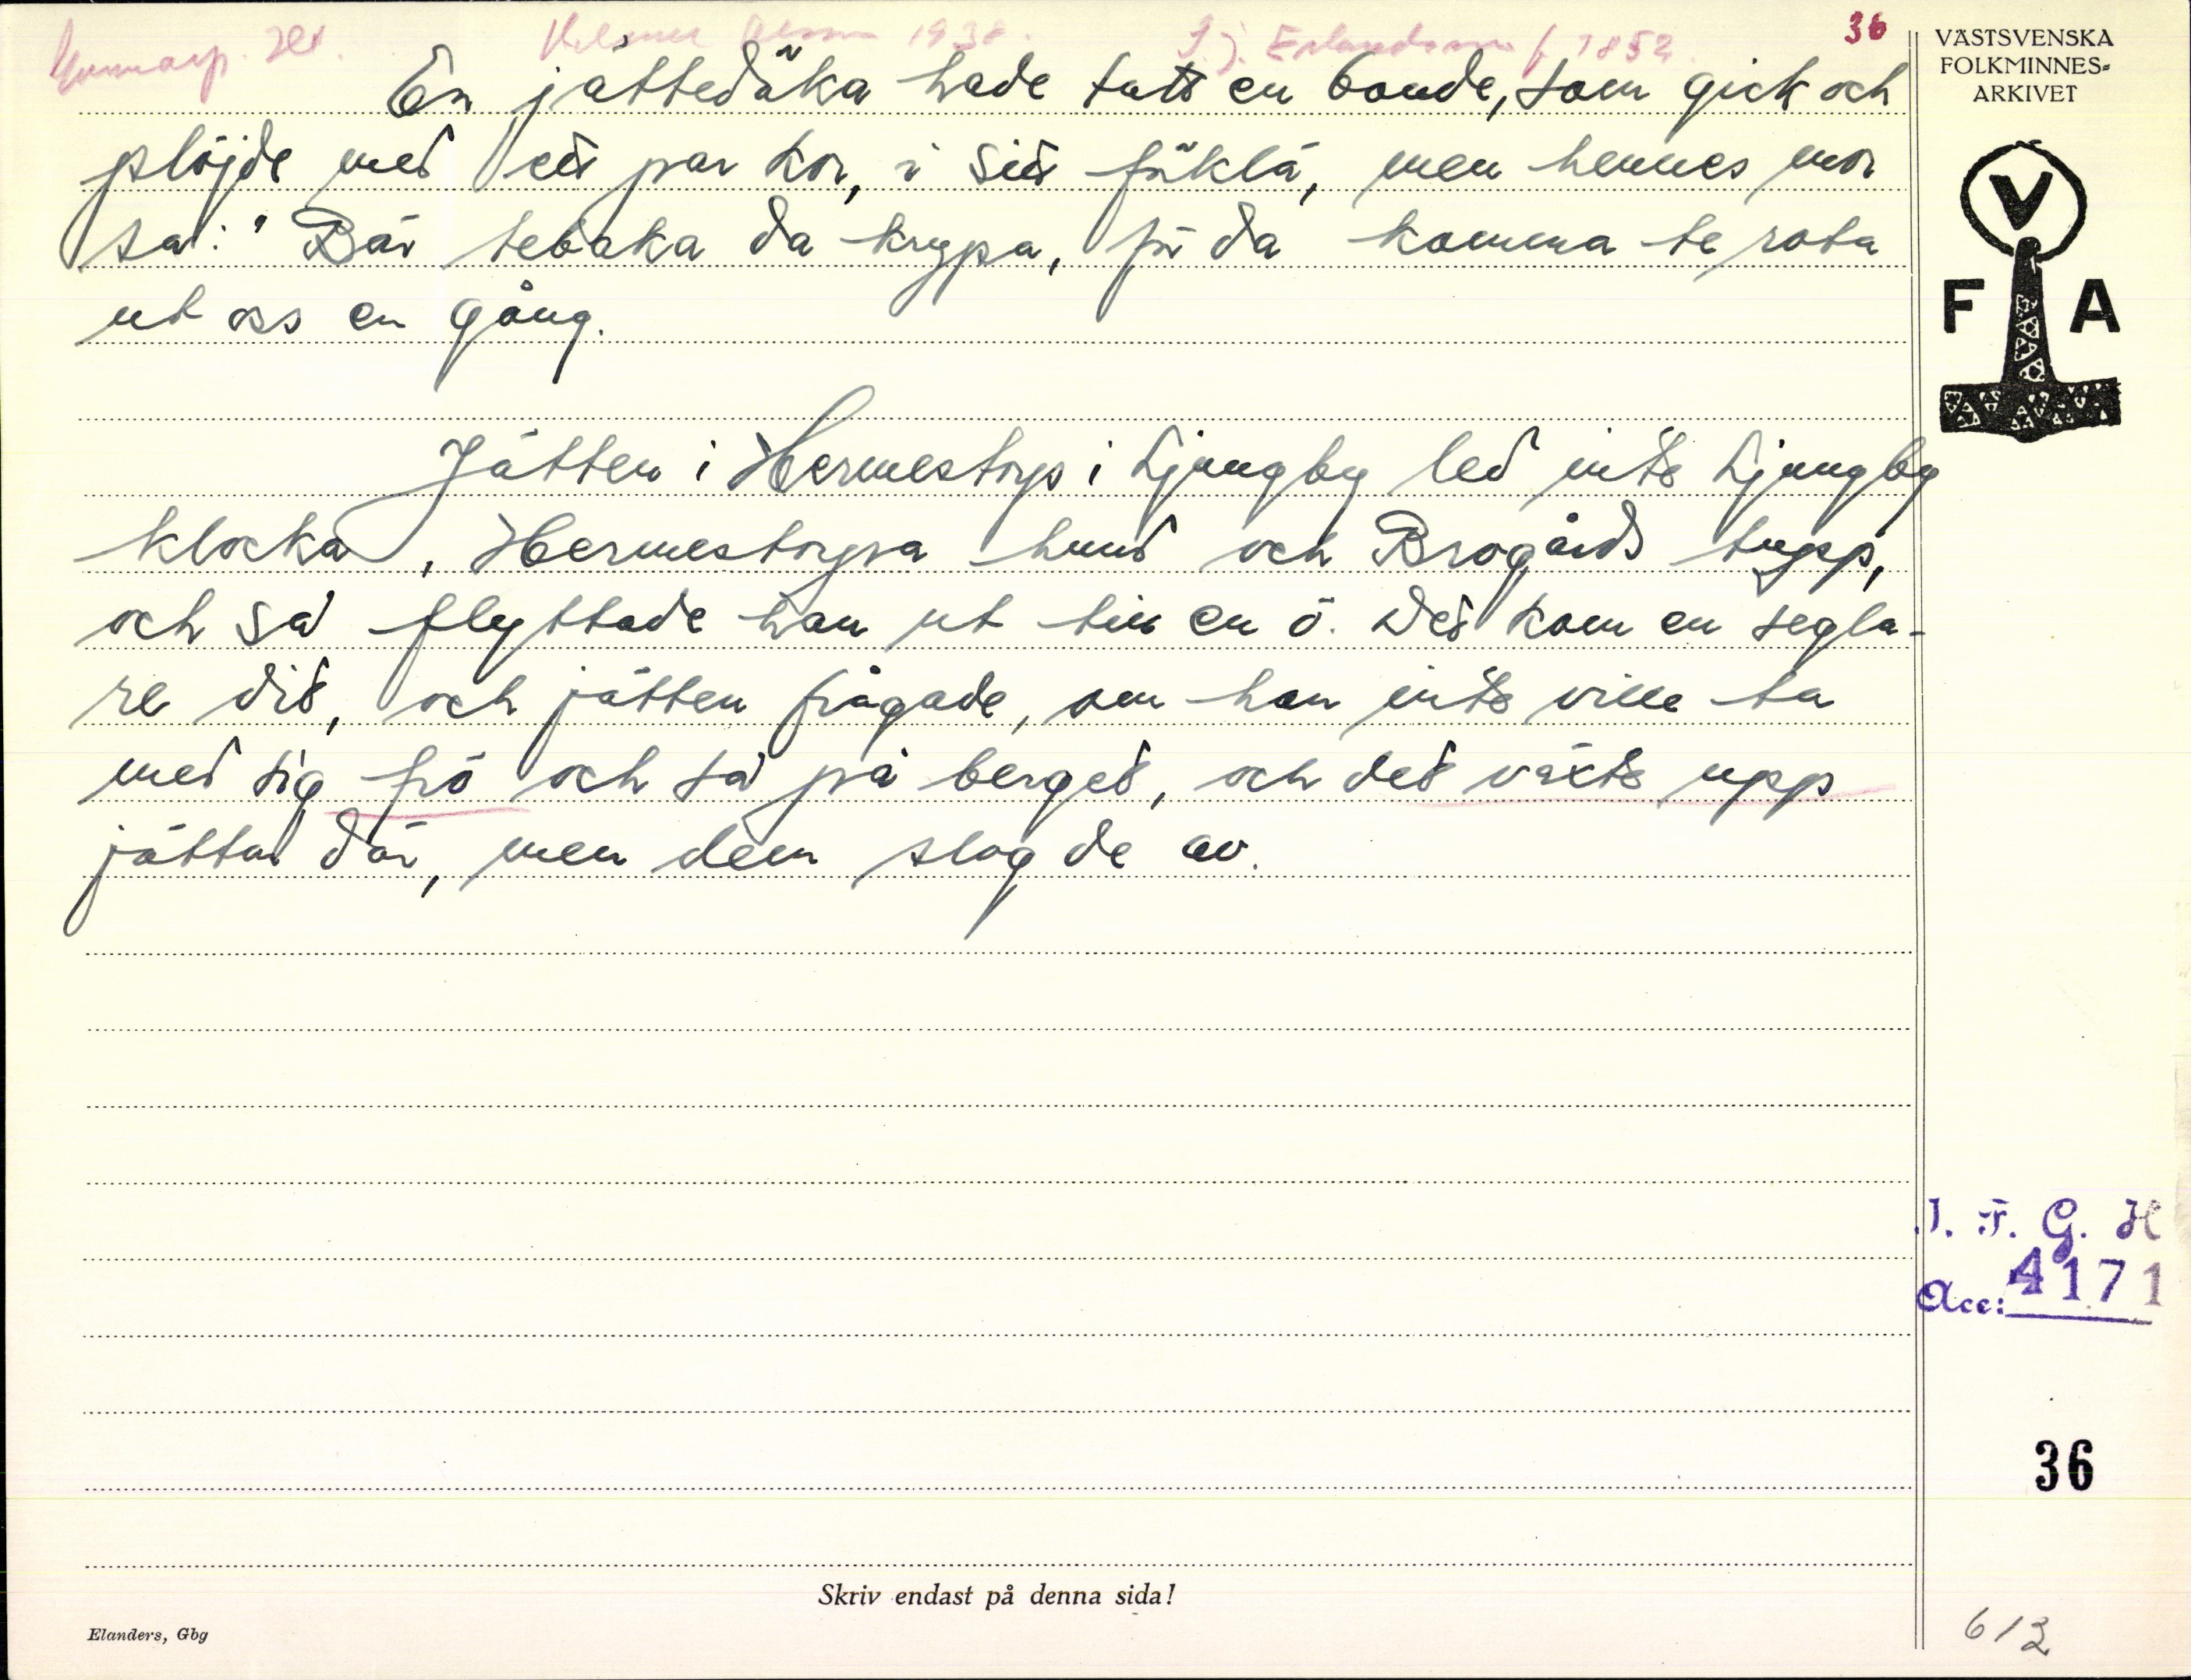 Gunnarp. Hl.
1938.
J. J. Erlandsson f. 1852.
36
VÄSTSVENSKA
FOLKMINNES-
ARKIVET
V
F A
En jättedöka hade tatt en bonde, som gick och
plöjde med ett par kor, i sitt föklä, men hennes mor
sa: "Bär tebaka da krypa, för da komma te rota
ut oss en gång.
Jätten i Hermestorp i Ljungby led inte Ljungby
klocka, Hermestorpa hund och Brogårds tupp,
och så flyttade han ut till en ö. Det kom en segla-
re dit, och jätten frågade, om han inte ville ta
med sig frö och så på berget, och det växte upp
jättar där, men dem slog de av.
I. F. G. H
Acc: 4171
36
Skriv endast på denna sida!
Elanders, Gbg